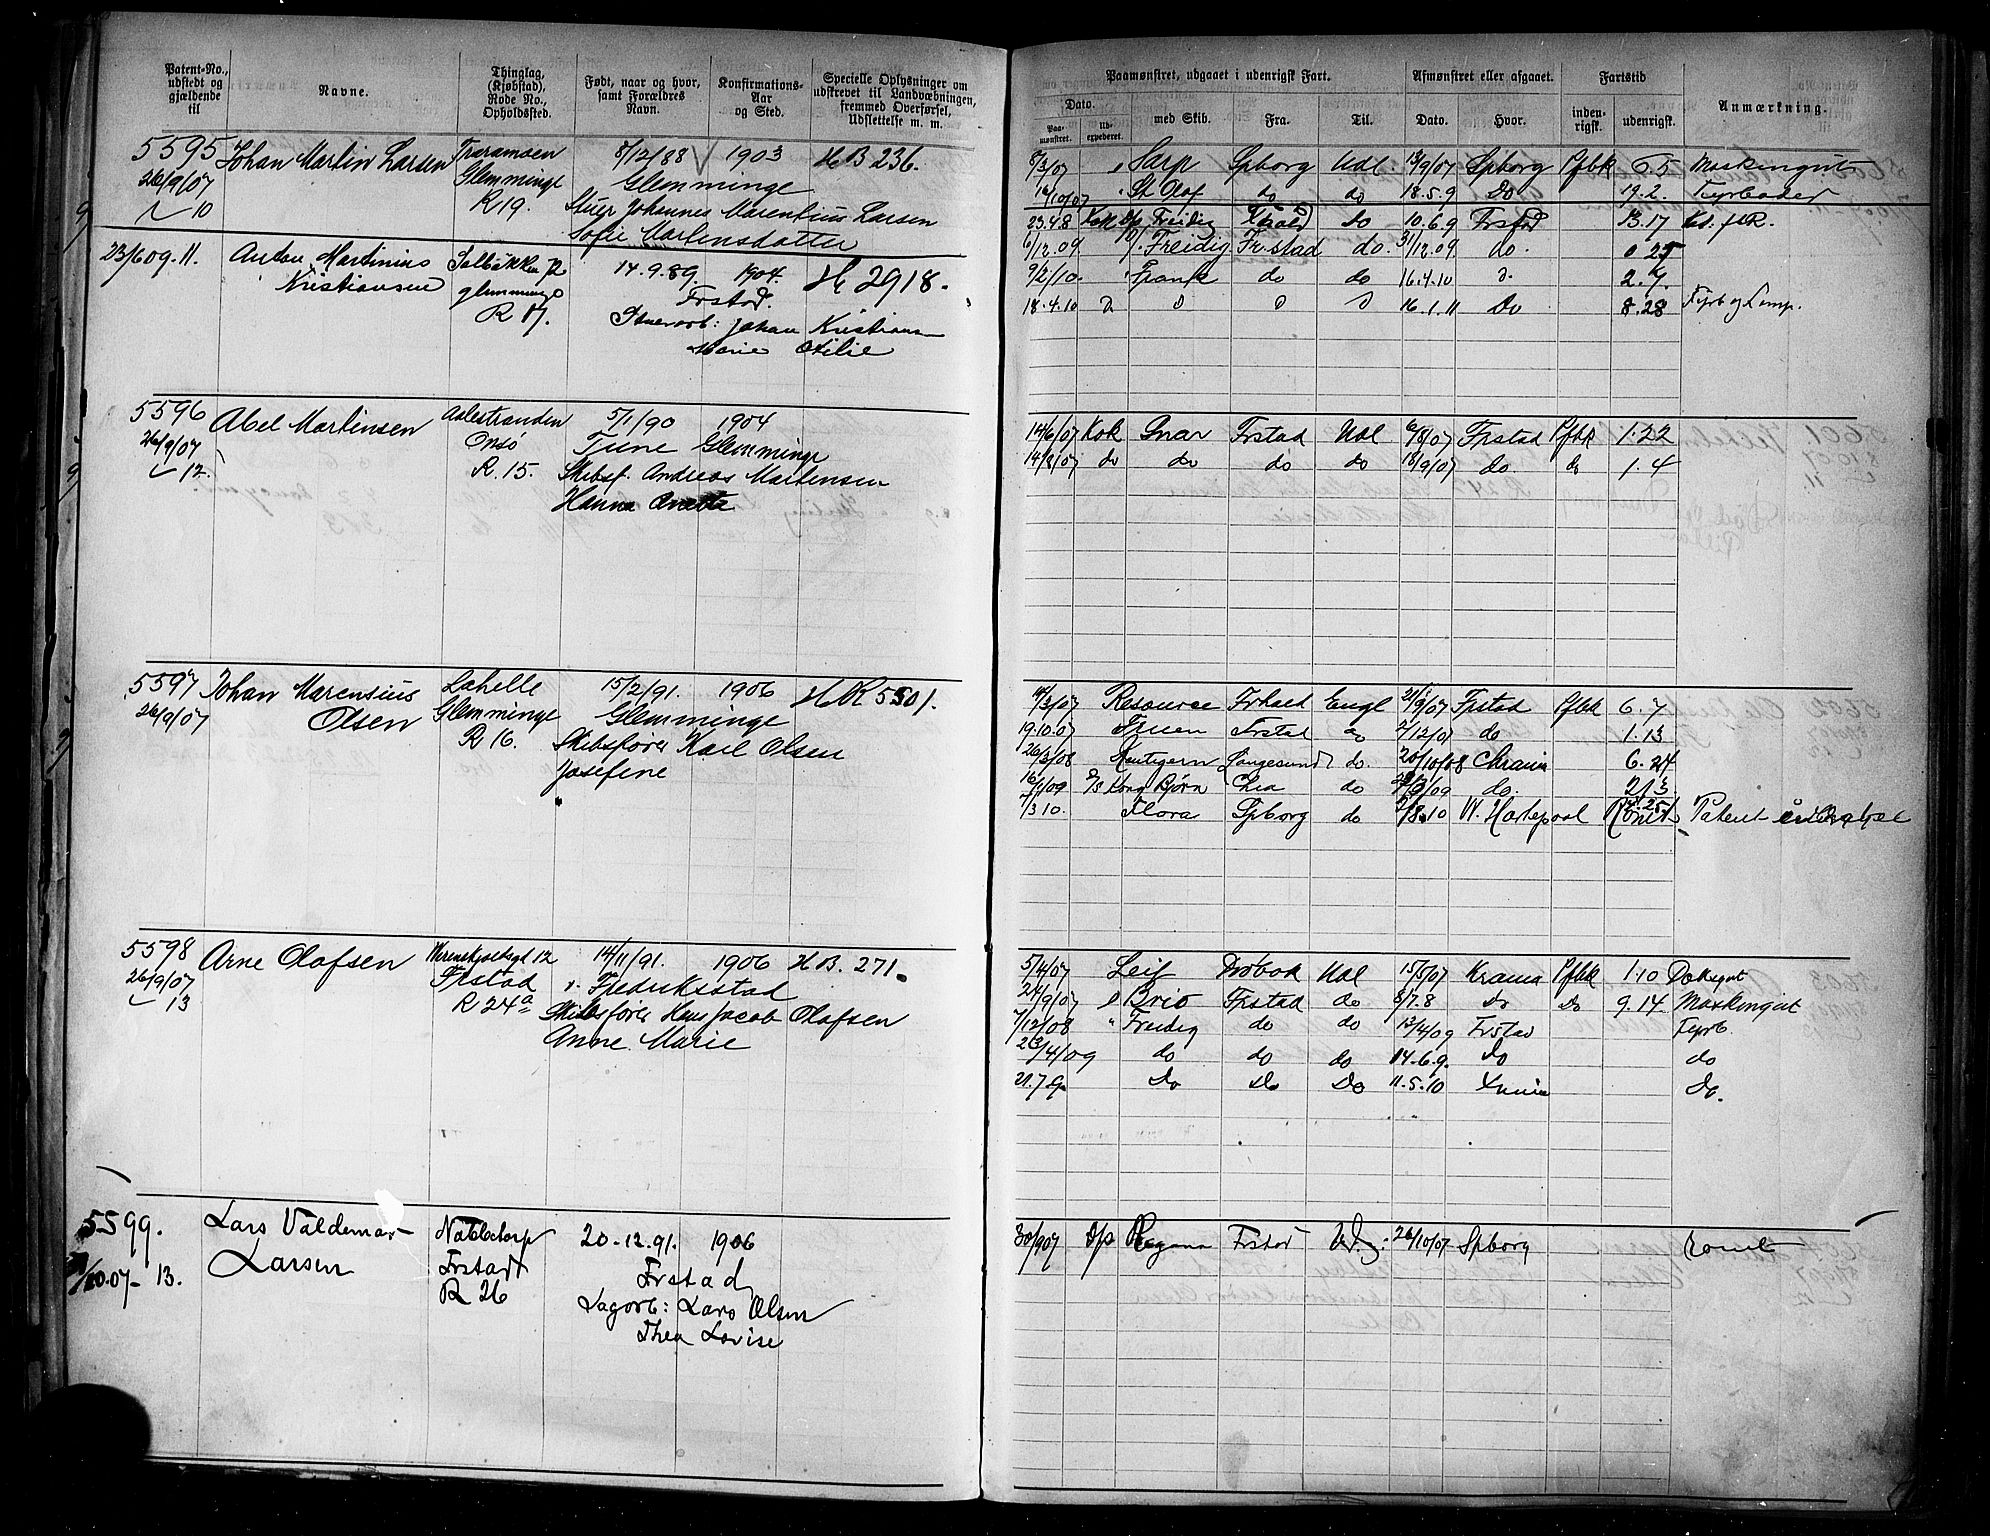 Patent-No., udstedt og gjældende til
Navne.
Thinglag, (Kjøbstad), Rode No., Opholdssted.
Født, naar og hvor, samt Forældres Navn.
Konfirmations-Aar og Sted.
Specielle Oplysninger om udskrevet til Landvæbningen, fremmed Overførsel, Udslettelse m. m.
5595 Johan Martin Larsen Traramsen 8/12/88 1903 H B 236.
26/9/07 Glemminge Glemminge
10 R 19. Stuer Johannes Marentius Larsen
Sofie Martensdatter
23/6 09. 11. Anton Martinius 14.9.89. 1904. H 2918.
Kristiansen glemminge Frstad.
R 17. Johan Kristiansen
Marie Otilie
5596 Abel Martinsen Aalestranden 5/1/90 1904
26/9/07 Onsø Tune Glemminge
12. R. 15. Skibsf. Andreas Martensen
Hanna
5597 Johan Marensius Lahelle 15/2/91. 1906 H R 5501.
26/9/07 Olsen Glemminge Glemminge
R 16. Skibsfører Karl Olsen
Josefine
5598 Arne Olafsen 12 14/11/91. 1906 H B. 271.
26/9/07 Frstad Fredriksstad
13 R 24a Skibsfører Hans Jacob Olafsen
Anne Marie
5599. Lars Valdemar Nabbetorp 20-12.91. 1906
/10.07- 13. Larsen Frstad Frstad
R 26 Sagarb: Lars Olsen
Thea Lovise
Paamønstret, udgaaet i udenrigsk Fart.
Afmønstret eller afgaaet.
Fartstid
Anmærkning.
Dato.
Paa-mønstret.
Ud-expederet.
med Skib.
Fra.
Til.
Dato.
Hvor.
inden-rigsk.
udenrigsk.
8/3/07 Sarp Spborg Udl 13/9/07 Spborg Pfbk 6.5 Maskingut
16/10/07 St Olaf do do 18.5.9 Do 19.2. Fyrbøder
23.4.8 Kok Freidig do 10.6.9 Frstad 13.17
6/12.09 Freidig Fr.stad do. 31/12.09 do. 0 25
9/2/10 Frank do do 16.4.10 2.7.
18.4.10 16.1.11 Do 8.28 Fyrb og Lemp.
14/6/07 Kok Gnar Frstad Udl 6/8/07 Frstad Pfbk 1.22
14/8/07 do do do do 18/9/07 do. do 1.4
/3/07 Resource Frhald Engl 21/9/07 Frstad Pfbk 6.7
19.10.07 Truen Frstad do 2/12/07 do 1.13
26/3/08 Kentigern Langesund do. 20/10/08 Chrania 6.24
16/1/09 Kong Bjørn Chra do do. 2.13.
7/3 10. Flora Spborg do /8.10 W. Hartepool Rømt Patent
5/4/07 Leif Drøbak Udl 15/5/07 Krania Pfbk 1.10 Dæksgut
24/9/07 Brio Frstad do 8/7.8 do Do 9.14. Maskingut
7/12/08 Freidig do do 13/4/09 Frstad Fyrb.
23/4/09 do do do 14.6.9. do do
21.7.9. Do Do Do 11.5.10 Do.
30/9 07 D/s Frstad Udl. 26/10/07 Spborg Rømt